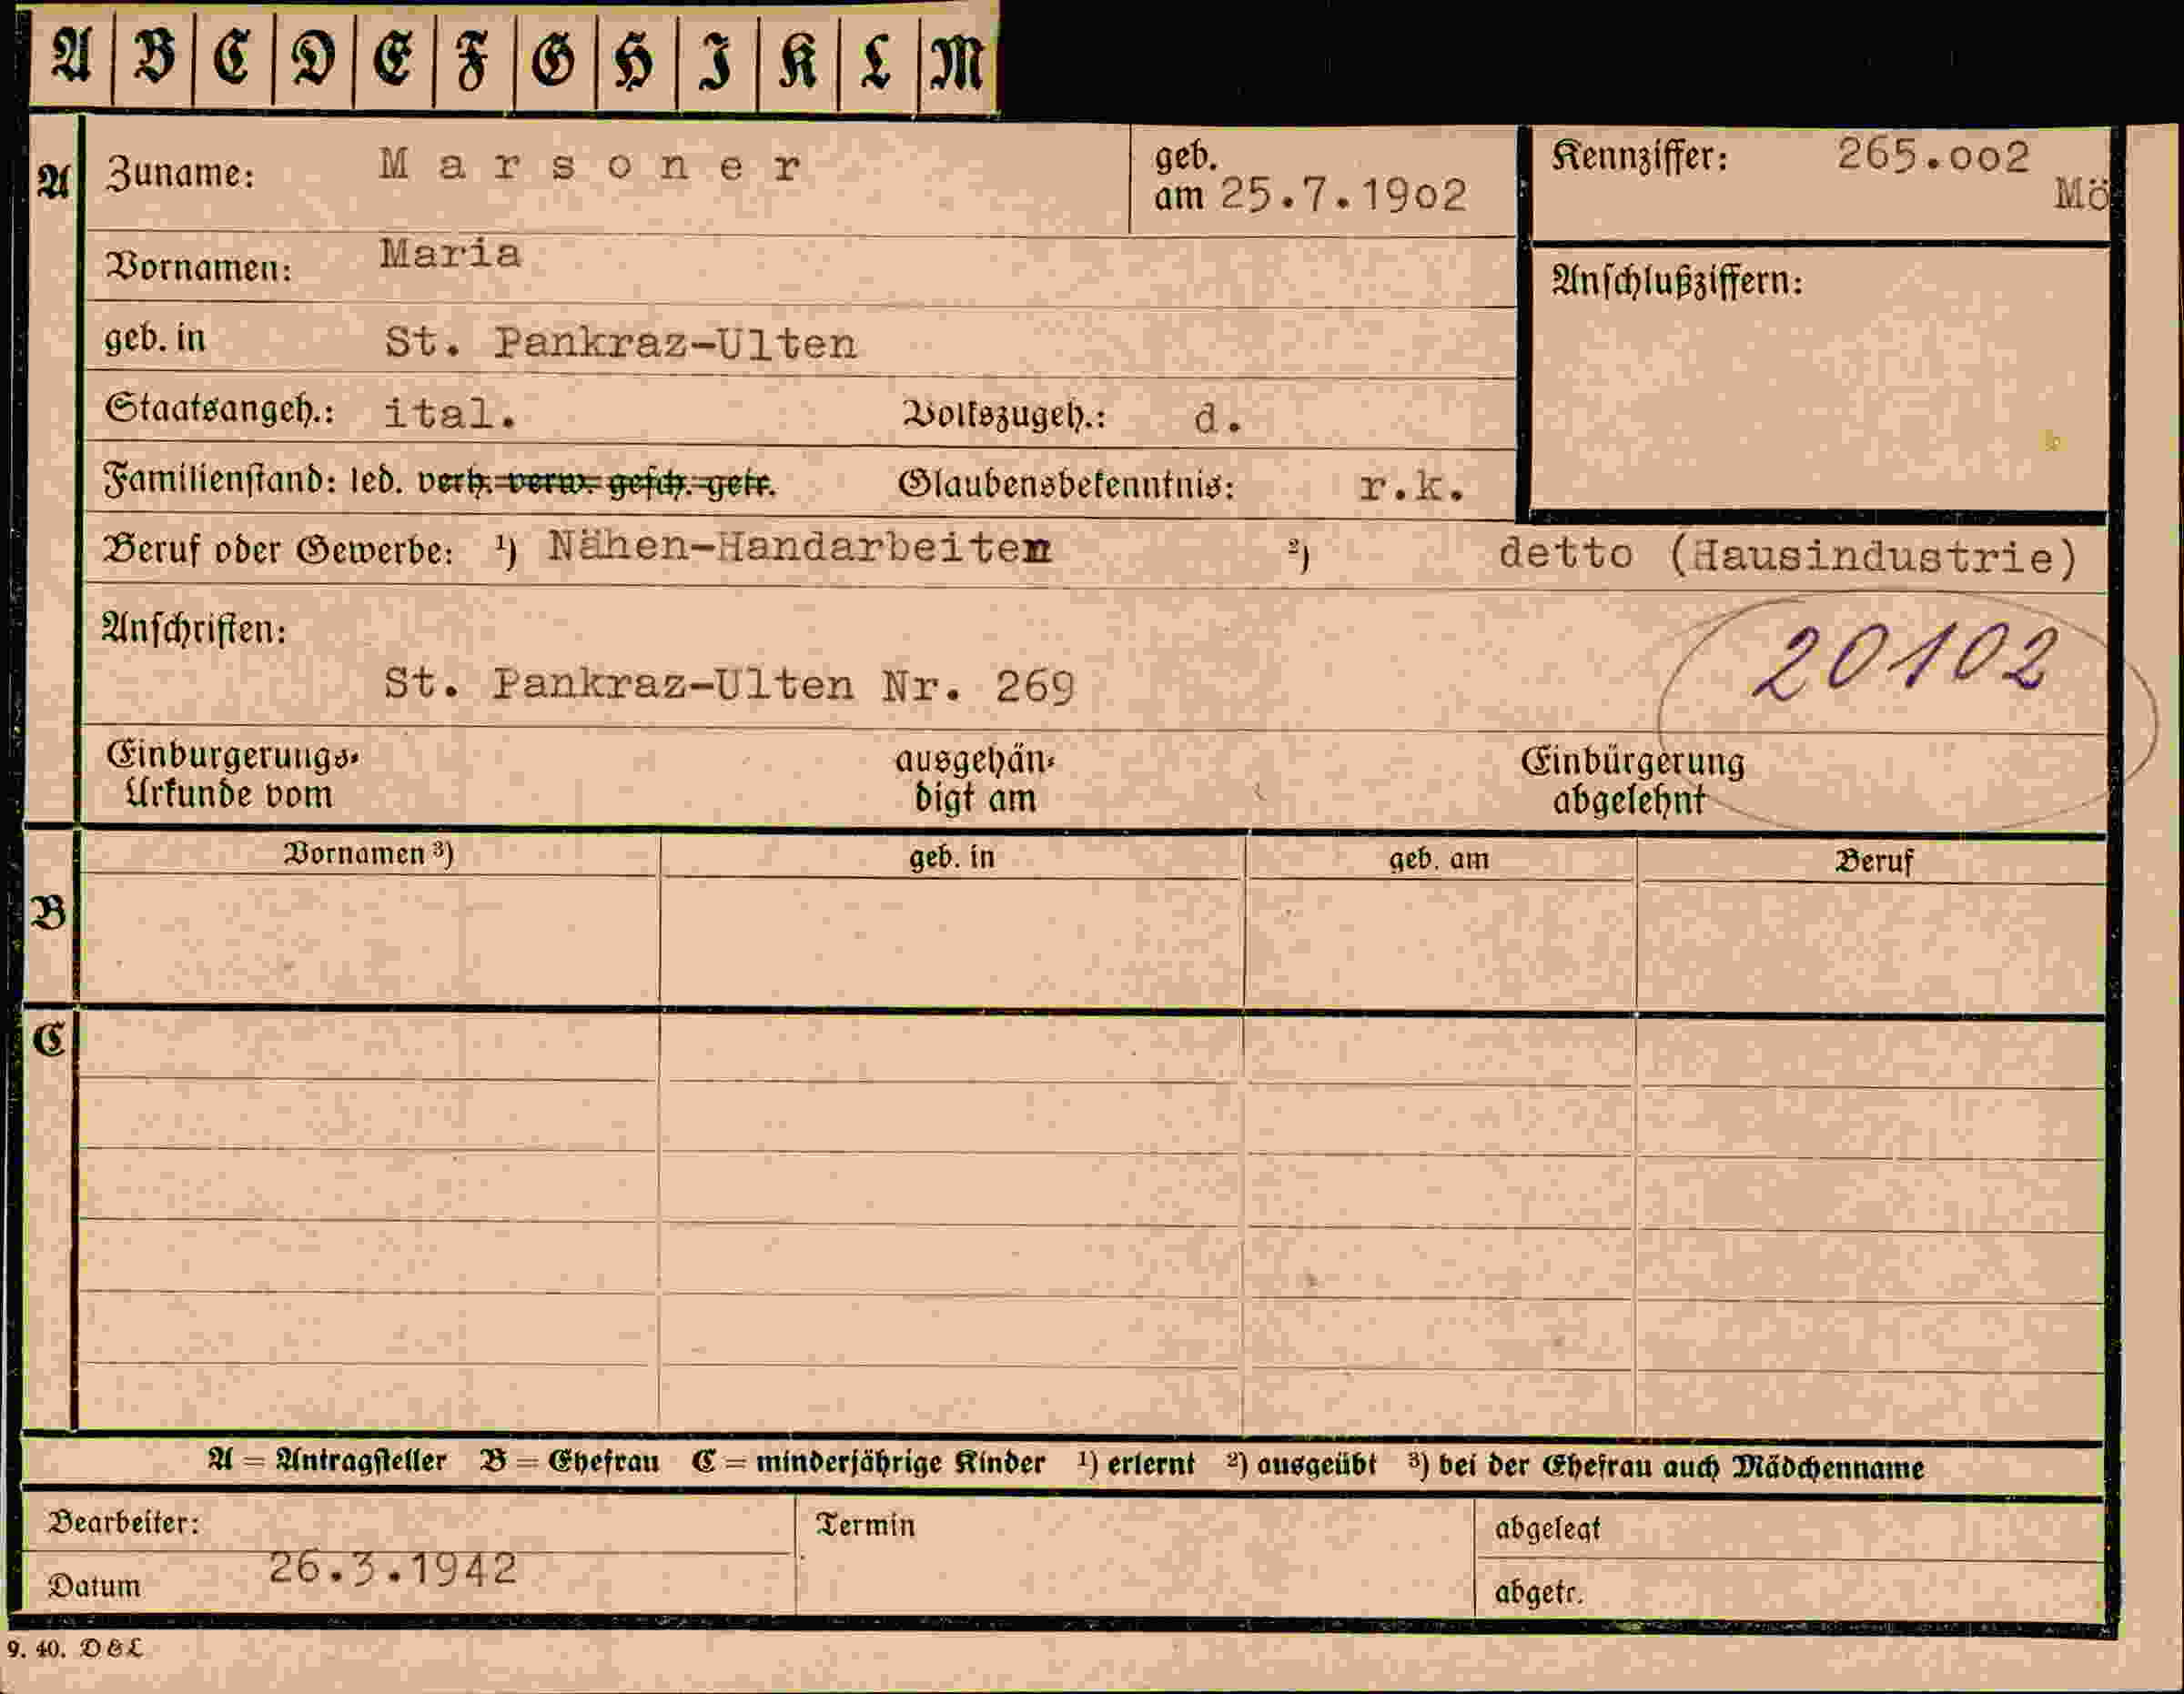 A B C D E F G H I K L M
A Zuname: Marsoner geb. am 25.7.1902 Kennziffer: 265.002
Mö
Vornamen: Maria
Anschlußziffern:
geb. in St. Pankraz-Ulten
Staatsangeh.: ital. Volkszugeh.: d.
Familienstand: led. verh. verw. gesch. getr. Glaubensbekenntnis: r.k.
Beruf oder Gewerbe: ¹) Nähen-Handarbeiten ²) detto (Hausindustrie)
Anschriften:
20102
St. Pankraz-Ulten Nr. 269
Einbürgerungs- ausgehän- Einbürgerung
Urkunde vom digt am abgelehnt
Vornamen ³) geb. in geb. am Beruf
B
C
A = Antragsteller B = Ehefrau C = minderjährige Kinder ¹) erlernt ²) ausgeübt ³) bei der Ehefrau auch Mädchenname
Bearbeiter: Termin abgelegt
Datum 26.3.1942 abgetr.
9. 40. D&L